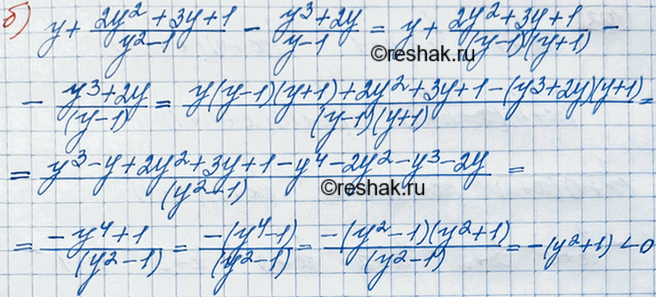 б) y + (2y² + 3y + 1)/(y² - 1) - (y³ + 2y)/(y - 1) = y + (2y² + 3y + 1)/((y - 1)(y + 1)) -
©reshak.ru
- (y³ + 2y)/(y - 1) = (y(y - 1)(y + 1) + 2y² + 3y + 1 - (y³ + 2y)(y + 1))/((y - 1)(y + 1)) =
= (y³ - y + 2y² + 3y + 1 - y⁴ - 2y² - y³ - 2y)/(y² - 1) =
©reshak.ru
= (-y⁴ + 1)/(y² - 1) = (-(y⁴ - 1))/(y² - 1) = (-(y² - 1)(y² + 1))/(y² - 1) = -(y² + 1) < 0